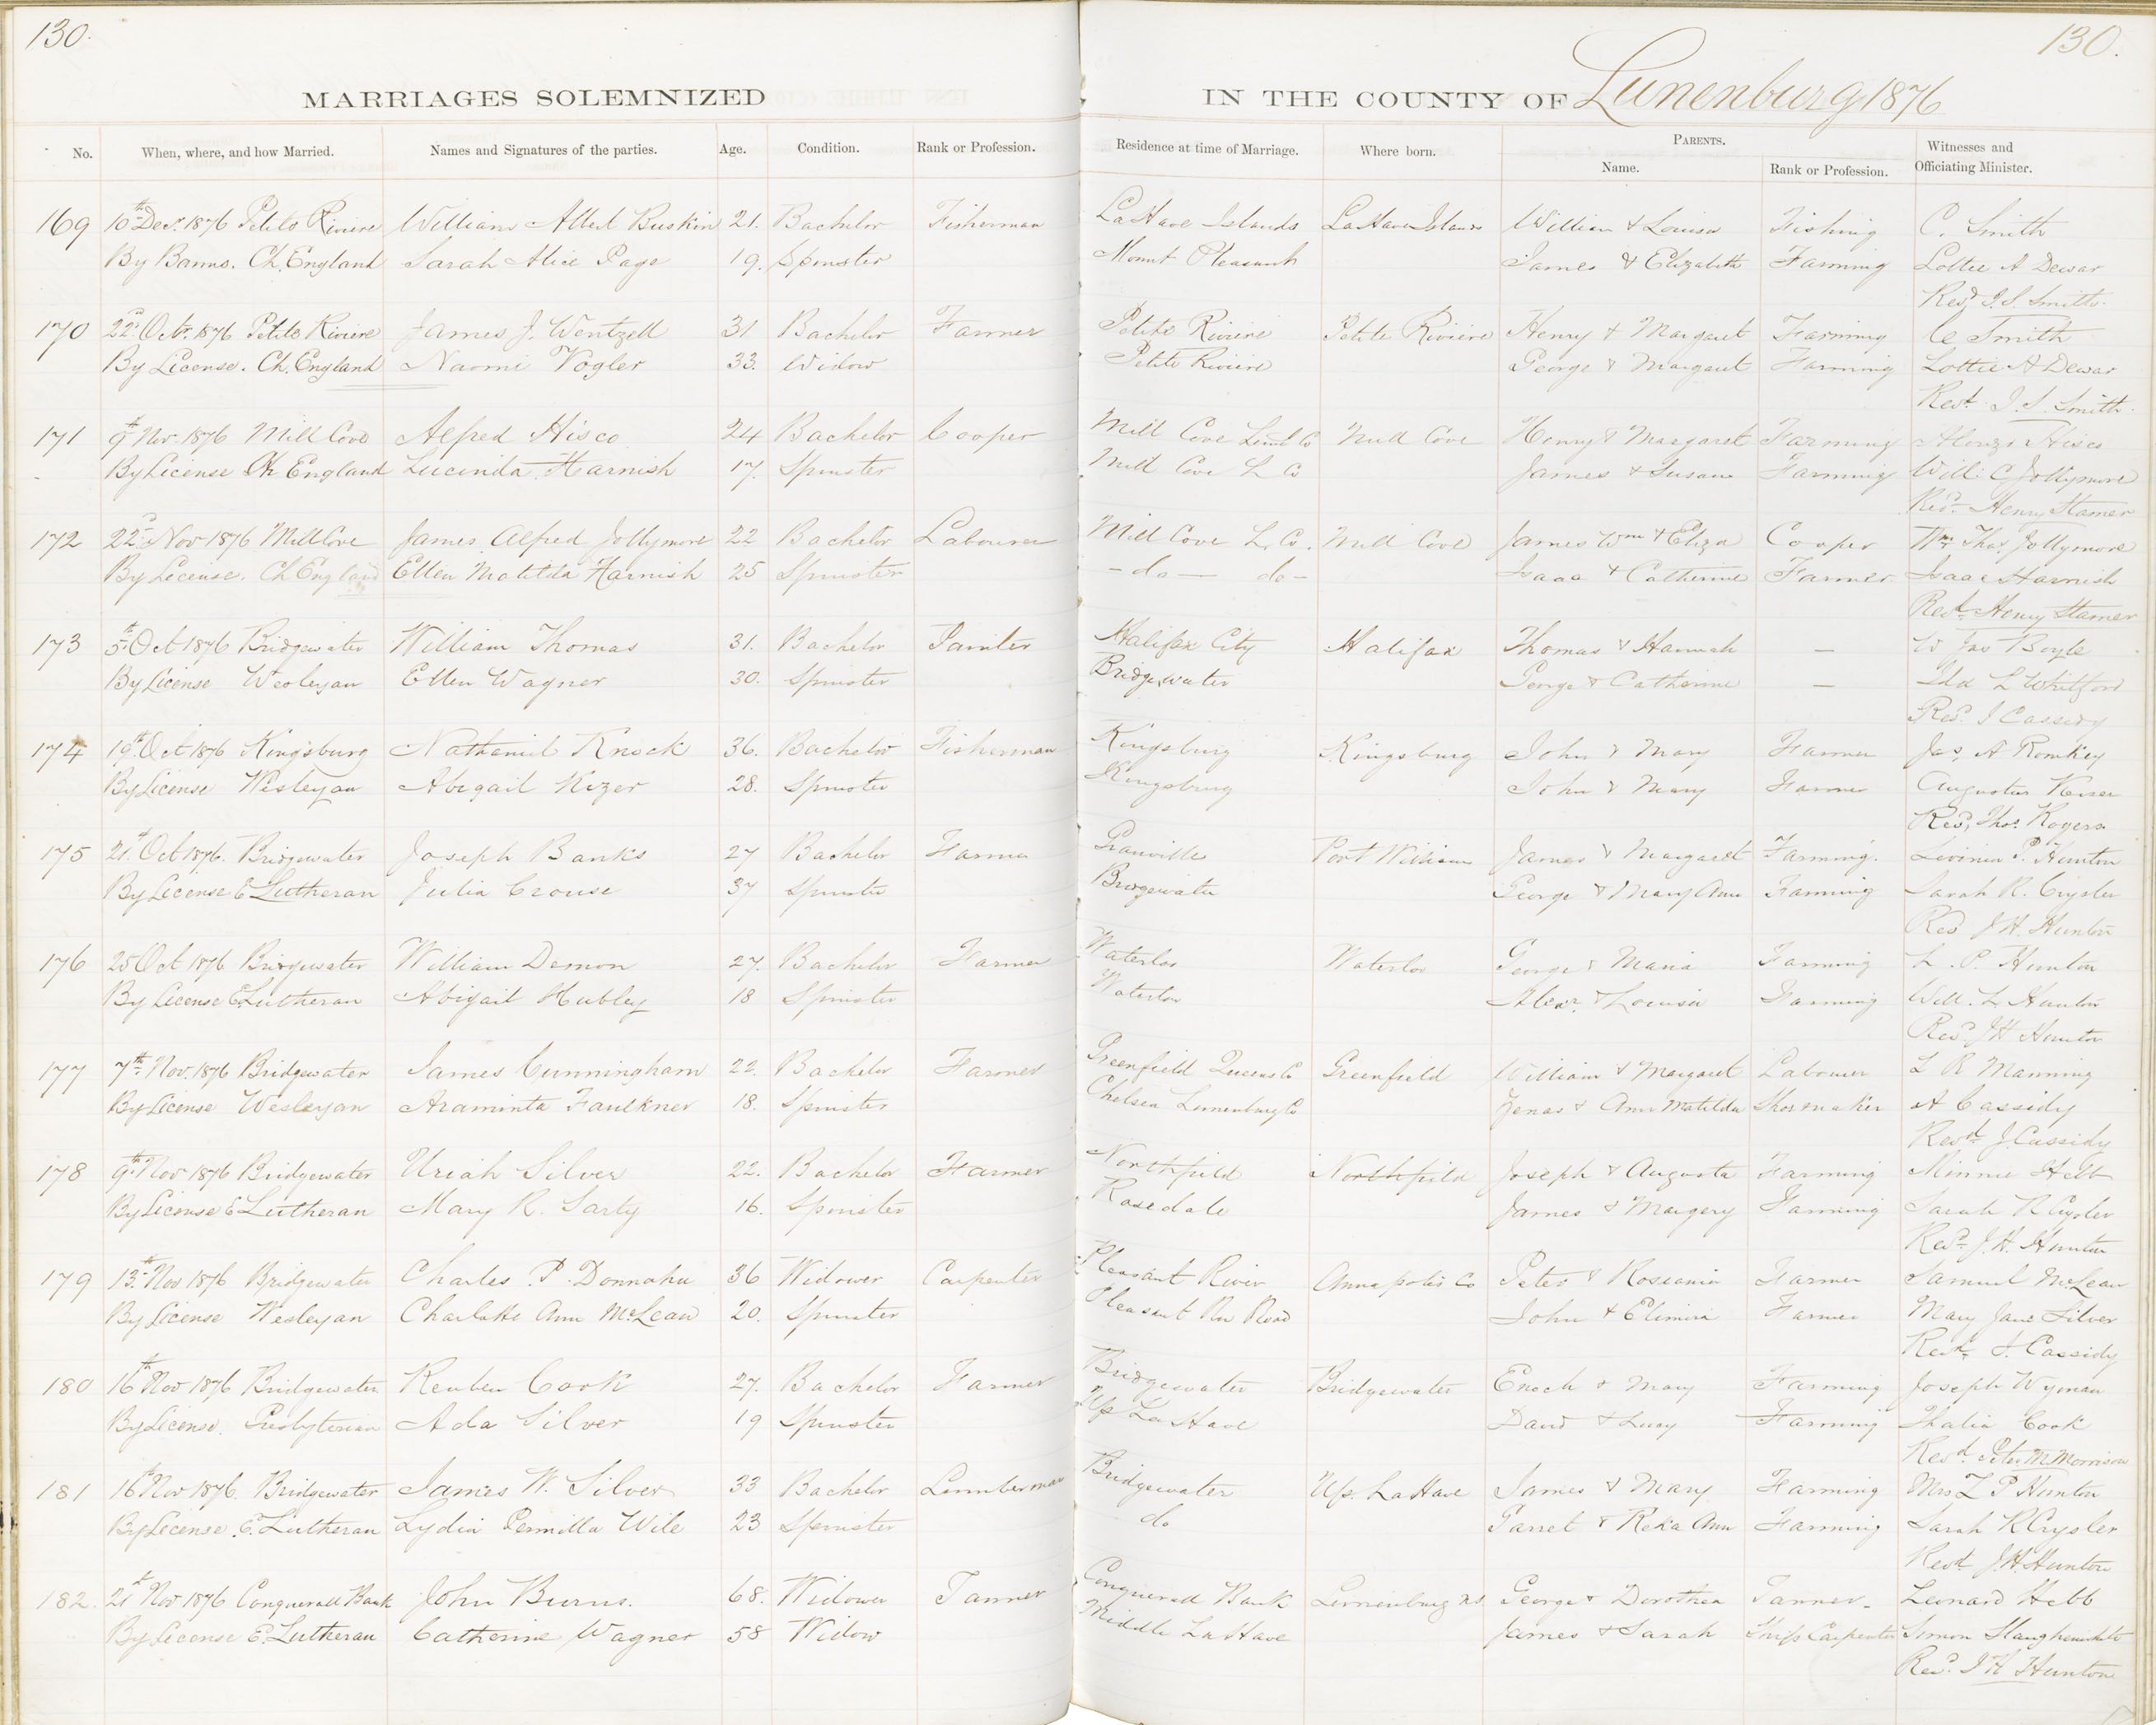 130.
MARRIAGES SOLEMNIZED
No. When, where, and how Married. Names and Signatures of the parties. Age. Condition. Rank or Profession.
169 10th Decr 1876 Petite Riviere William Albert Buskin 21. Bachelor Fisherman
By Banns. Ch. England Sarah Alice Page 19. Spinster
170 22d Octr. 1876 Petite Riviere James J. Wentzell 31 Bachelor Farmer
By License. Ch. England Naomi Vogler 33. Widow
171 9th Nov. 1876 Mill Cove Alfred Hisco 24 Bachelor Cooper
By License Ch England Lucinda Harnish 17. Spinster
172 22d Nov 1876 Mill Cove James Alfred Jollymore 22 Bachelor Labourer
By License. Ch England Ellen Matilda Harnish 25 Spinster
173 5th Oct 1876 Bridgewater William Thomas 31. Bachelor Painter
By License Wesleyan Ellen Wagner 30. Spinster
174 19th Oct 1876 Kingsburg Nathaniel Knock 36. Bachelor Fisherman
By License Wesleyan Abigail Kizer 28. Spinster
175 21st Oct 1876. Bridgewater Joseph Banks 27 Bachelor Farmer
By License E Lutheran Julia Crouse 37 Spinster
176 25 Oct 1876 Bridgewater William Demon 27. Bachelor Farmer
By License E. Lutheran Abigail Hubley 18 Spinster
177 7th Nov. 1876 Bridgewater James Cunningham 22. Bachelor Farmer
By License Wesleyan Araminta Faulkner 18. Spinster
178 9th Nov 1876 Bridgewater Uriah Silver 22. Bachelor Farmer
By License E Lutheran Mary R. Sarty 16. Spinster
179 13th Nov 1876 Bridgewater Charles P. Donnahu 36 Widower Carpenter
By License Wesleyan Charlotte Ann McLean 20. Spinster
180 16th Nov 1876 Bridgewater Reuben Cook 27. Bachelor Farmer
By License. Presbyterian Ada Silver 19 Spinster
181 16th Nov 1876. Bridgewater James W. Silver 33 Bachelor Lumberman
By License E. Lutheran Lydia Permilla Wile 23 Spinster
182. 21st Nov 1876 Conquerall Bank John Burns. 68. Widower Tanner
By License E. Lutheran Catherine Wagner 58 Widow
130.
IN THE COUNTY OF Lunenburg 1876
Residence at time of Marriage. Where born. PARENTS. Witnesses and
Name. Rank or Profession. Officiating Minister.
LaHave Islands LaHave Islands William & Louisa Fishing C. Smith
Mount Pleasant James & Elizabeth Farming Lottie A Dewar
Revd J. S. Smith.
Petite Riviere Petite Riviere Henry & Margaret Farming C Smith
Petite Riviere George & Margaret Farming Lottie A Dewar
Revd. J. S. Smith.
Mill Cove Lunb Co Mill Cove Henry & Margaret Farming Alonzo Hisco
Mill Cove L Co James & Susan Farming Will C Jollymore
Revd. Henry Stamer
Mill Cove L. Co. Mill Cove James Wm & Eliza Cooper Wm Thos. Jollymore
- do - do - Isaac & Catherine Farmer Isaac Harnish
Revd. Henry Stamer
Halifax City Halifax Thomas & Hannah — W Jas Boyle
Bridgewater George & Catherine — Ida L Whitford
Revd. J Cassidy
Kingsburg Kingsburg John & Mary Farmer Jas. A Romkey
Kingsburg John & Mary Farmer Augustus
Revd. Thos. Rogers
Granville Port William James & Margaret Farming. Lavinia P. Hunton
Bridgewater George & Mary Ann Farming Sarah R. Crysler
Revd J. H. Hunton
Waterloo Waterloo George & Maria Farming L. P. Hunton
Waterloo Alexr. & Louisa Farming Will. L. Hunton
Revd. J H Hunton
Greenfield Queens Co Greenfield William & Margaret Labourer L R Manning
Chelsea Lunenburg Co Jonas & Ann Matilda Shoemaker A Cassidy
Revd. J. Cassidy
Northfield Northfield Joseph & Augusta Farming Minnie Hebb
Rosedale James & Margery Farming Sarah R Crysler
Revd. J. H. Hunton
Pleasant River Annapolis Co Peter & Rossania Farmer Samuel McLean
Pleasant Riv Road John & Elimira Farmer Mary Jane Silver
Revd. J. Cassidy
Bridgewater Bridgewater Enoch & Mary Farming Joseph Wyman
Up LaHave David & Lucy Farming Thalia Cook
Revd. Peter M Morrison
Bridgewater Up. LaHave James & Mary Farming Mrs L P Hunton
do Garret & Reka Ann Farming Sarah R Crysler
Revd. J. H. Hunton
Conquerall Bank Lunenburg NS George & Dorothea Tanner. Leonard Hebb
Middle LaHave James & Sarah Ship Carpenter Simon Slaughenwhite
Revd. J H Hunton